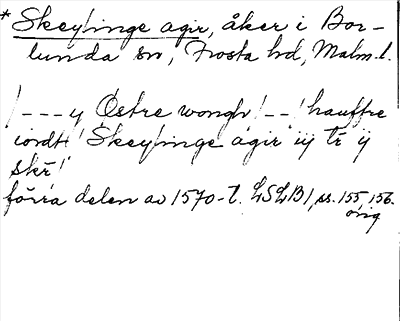 * Skeylinge agir, åker i Bor-
lunda sn, Frosta hd, Malm. l.
/ - - - y Östre wongh / - - / hauffre
iordt / Skeylinge agir iij tr ij
skr /
förra delen av 1570-t. LSLB 1, ss. 155, 156.
orig